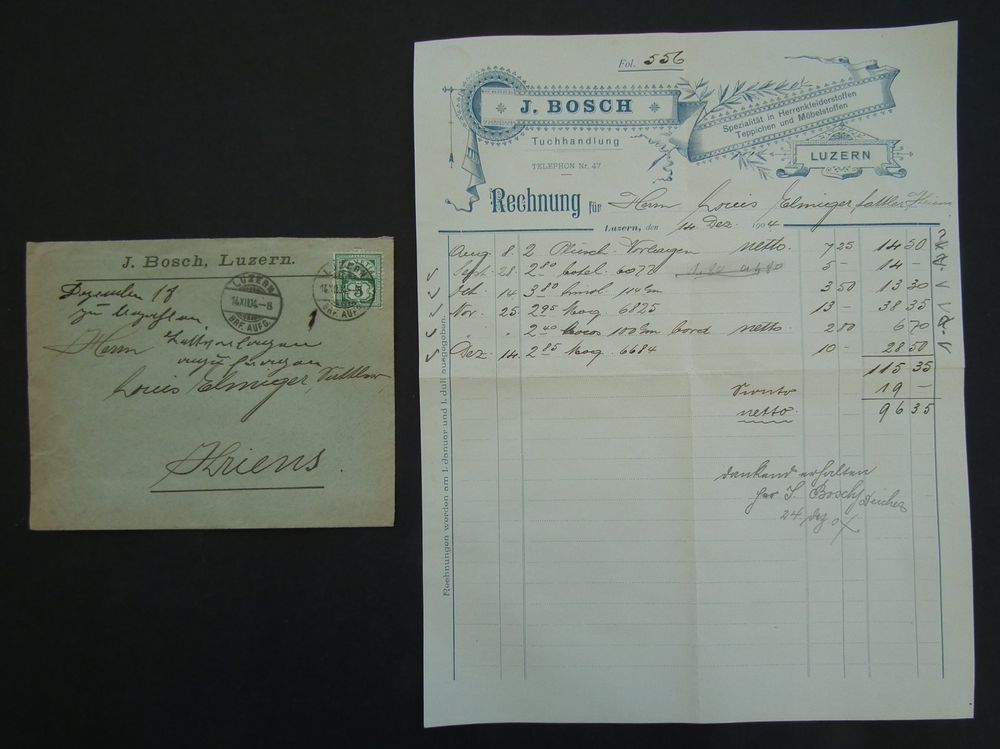 J. Bosch, Luzern.
Dezember 18
zu bezahlen
Herrn
Louis Elmiger Sattler
Kriens.
LUZERN
14.XII.04.-8
BRF. AUFG.
LUZERN
14.XII.
BRF. AUFG.
5
Fol. 556
J. BOSCH
Tuchhandlung
TELEPHON Nr. 47
Spezialität in Herrenkleiderstoffen
Teppichen und Möbelstoffen
LUZERN
Rechnung für Herrn Louis Elmiger Sattler Kriens
Luzern, den 14 Dez. 1904
Aug 8. 2 Plüsch-Vorlagen netto. 7 25 14 50
Sept. 28. 2 80 6072 5 - 14 -
14 3 80 114 cm 3 50 13 30
Nov. 25 2 95 Moq 6825 13 - 38 35
" . 2 40 Cocos 100 cm bord netto. 2 80 6 70
Dez. 14. 2 85 Moq. 6684 10 - 28 50
115 35
Skonto 19 -
netto. 96 35
dankend erhalten
per J. Bosch
24. Dez. 04
Rechnungen werden am 1. Januar und 1. Juli ausgegeben.